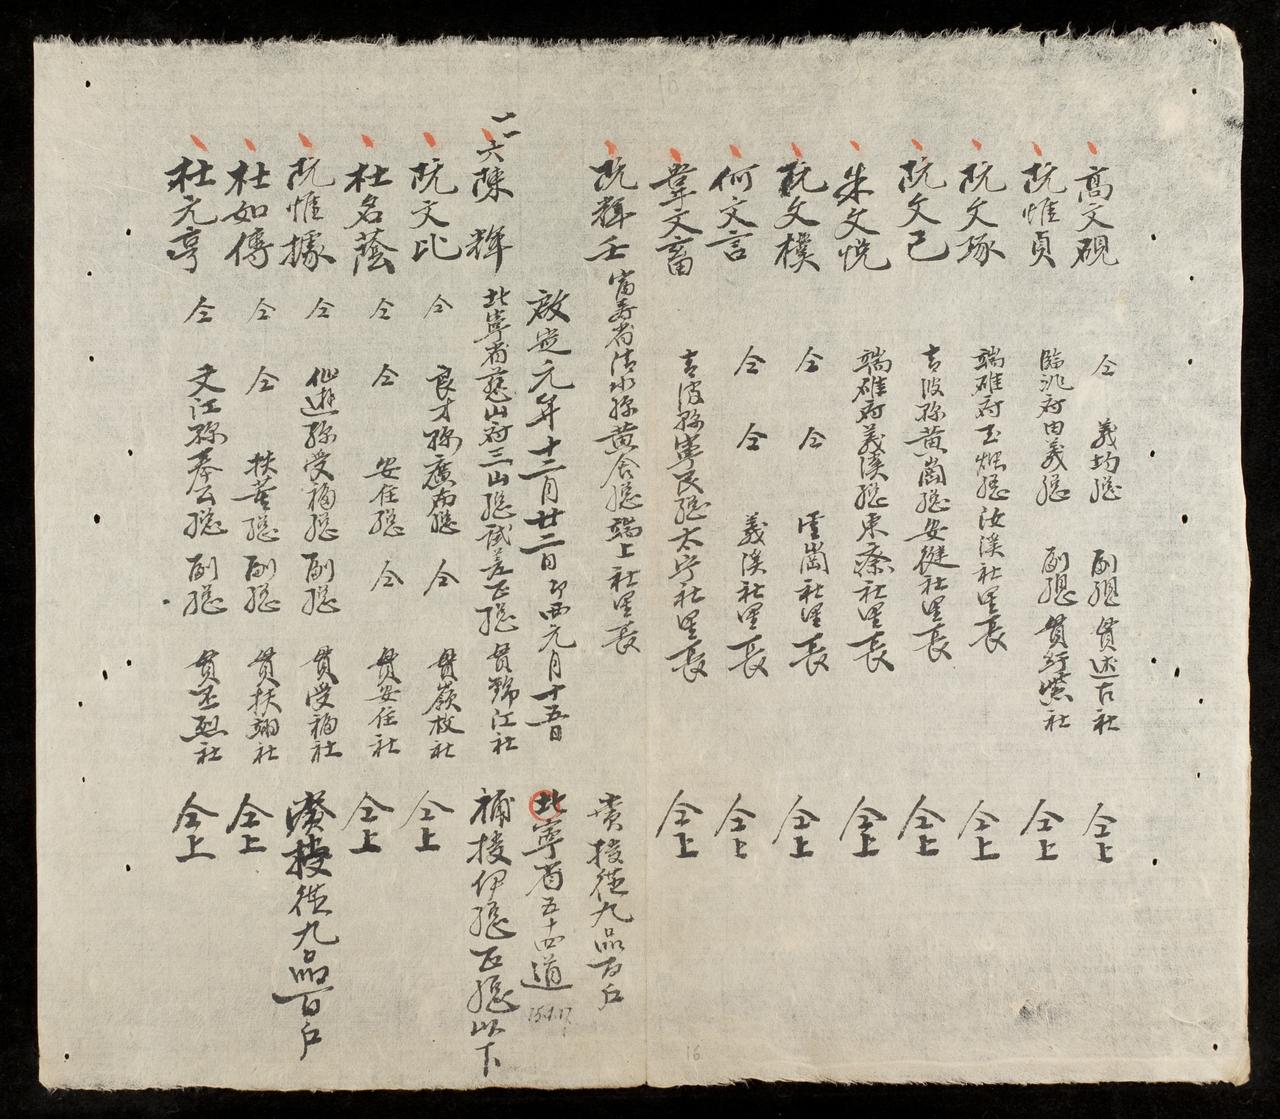 高文硯 仝 義均總 副總 貫述古社 仝上
阮惟貞 臨洮府由義總 副總 貫行紫社 仝上
阮文琢 端雄府玉㷟總汝漢社里長 仝上
阮文己 青波縣黃崗總安徙社里長 仝上
朱文悅 端雄府義溪總東療社里長 仝上
阮文樸 仝 仝 雲崗社里長 仝上
何文言 仝 仝 義溪社里長 仝上
韋文畜 青波縣寧民總太寧社里長 仝上
阮輝壬 富壽省清水縣黃舍總端上社里長 賞授從九品百戶
啟定元年十二月廿二日 卯西元月十五日 北寧省五十四道 15.1.17
一六陳輝 北寧省慈山府三山總試差正總 貫錦江社 補授伊總正總以下
阮文比 仝 良才縣廣布總 仝 貫嶺枚社 仝上
杜名蔭 仝 仝 安住總 仝 貫安住社 仝上
阮惟據 仝 仙遊縣受福總 副總 貫受福社 賞授從九品百戶
杜如傳 仝 仝 扶董總 副總 貫扶翊社 仝上
杜元亨 仝 文江縣奉公總 副總 貫丕烈社 仝上
16